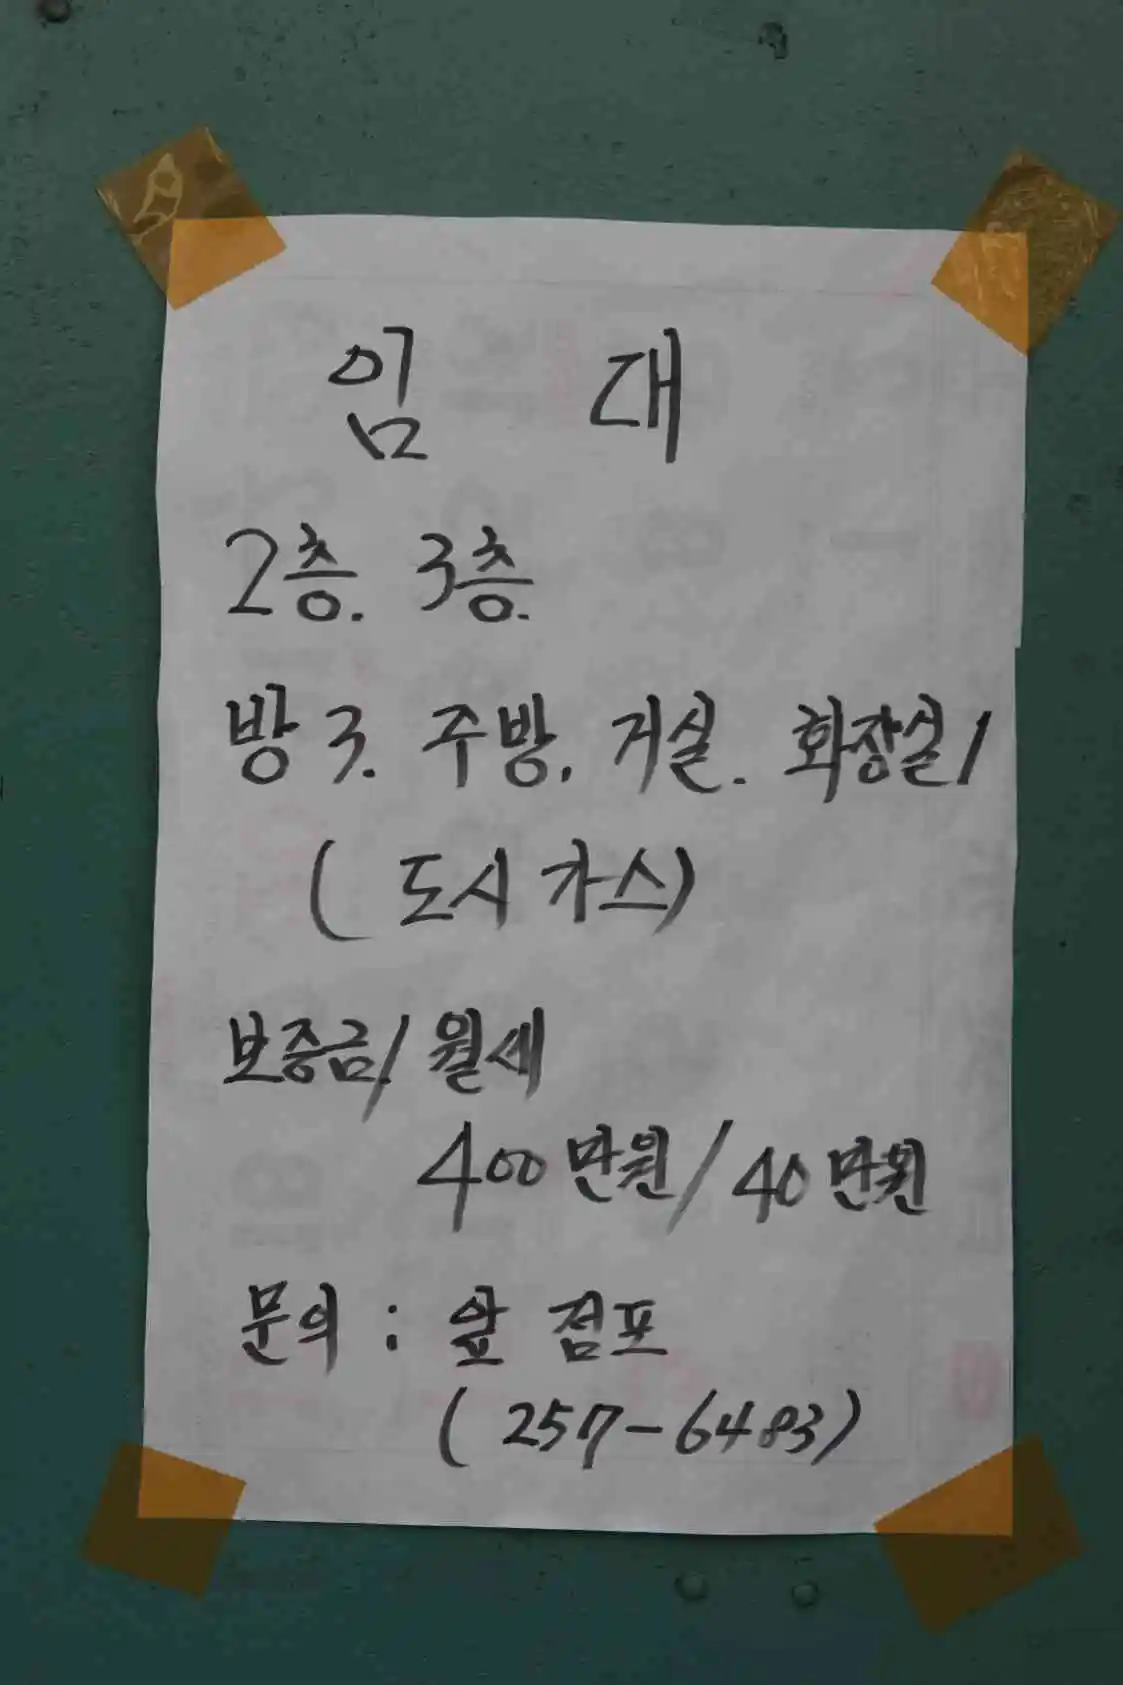 임 대
2층. 3층.
방 3. 주방. 거실. 화장실 1
( 도시 가스)
보증금/ 월세
400만원/40만원
문의 : 앞 점포
( 257-6483)